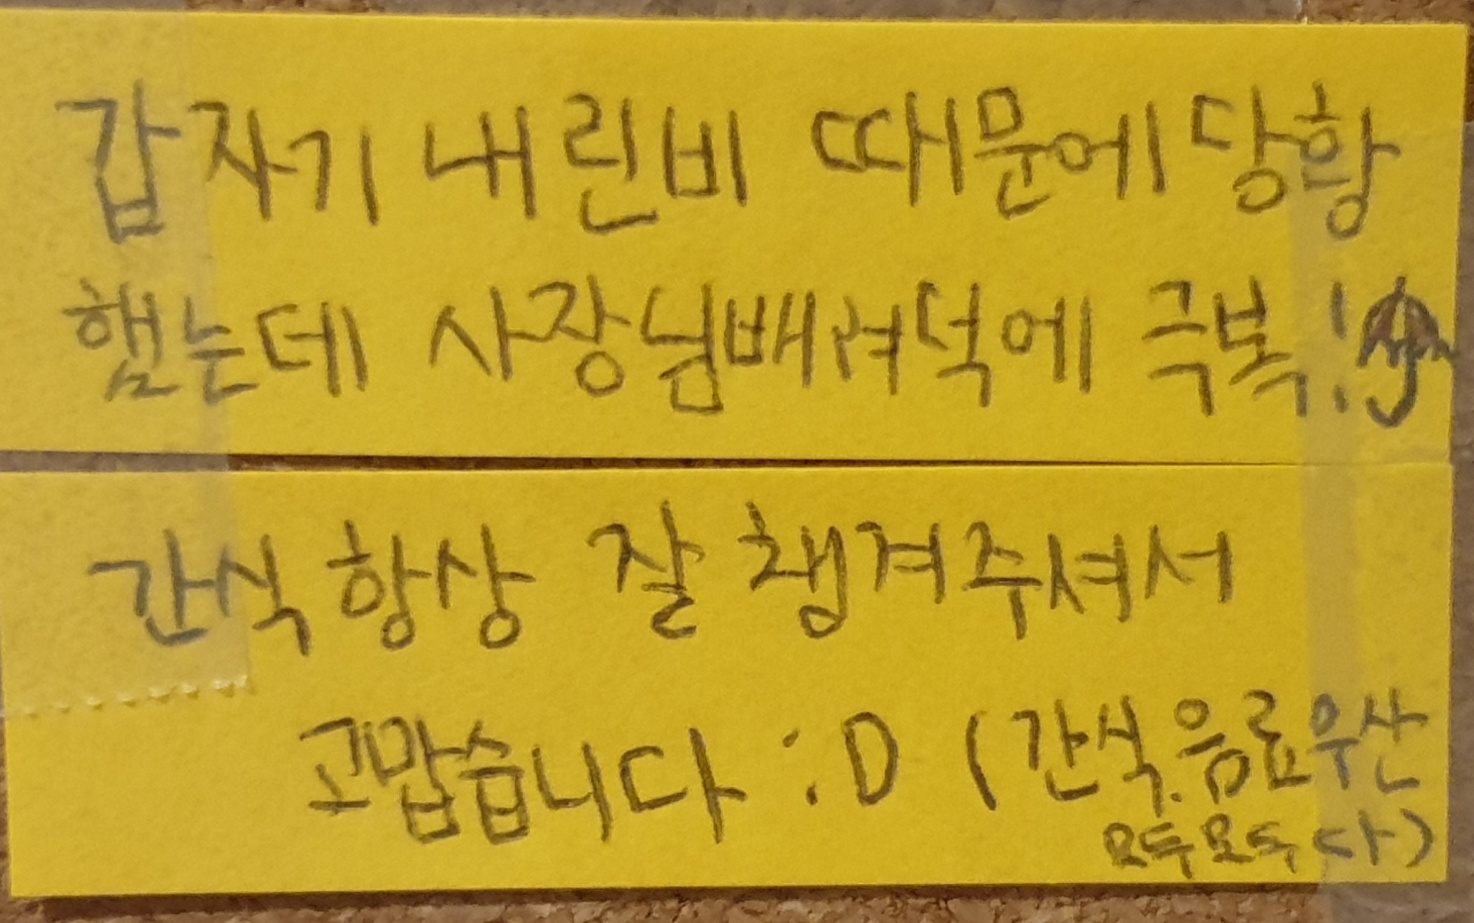 갑자기 내린비 때문에 당황
했는데 사장님배려덕에 극복!
간식 항상 잘 챙겨주셔서
고맙습니다 :D (간식.음료우산
모두모두다)